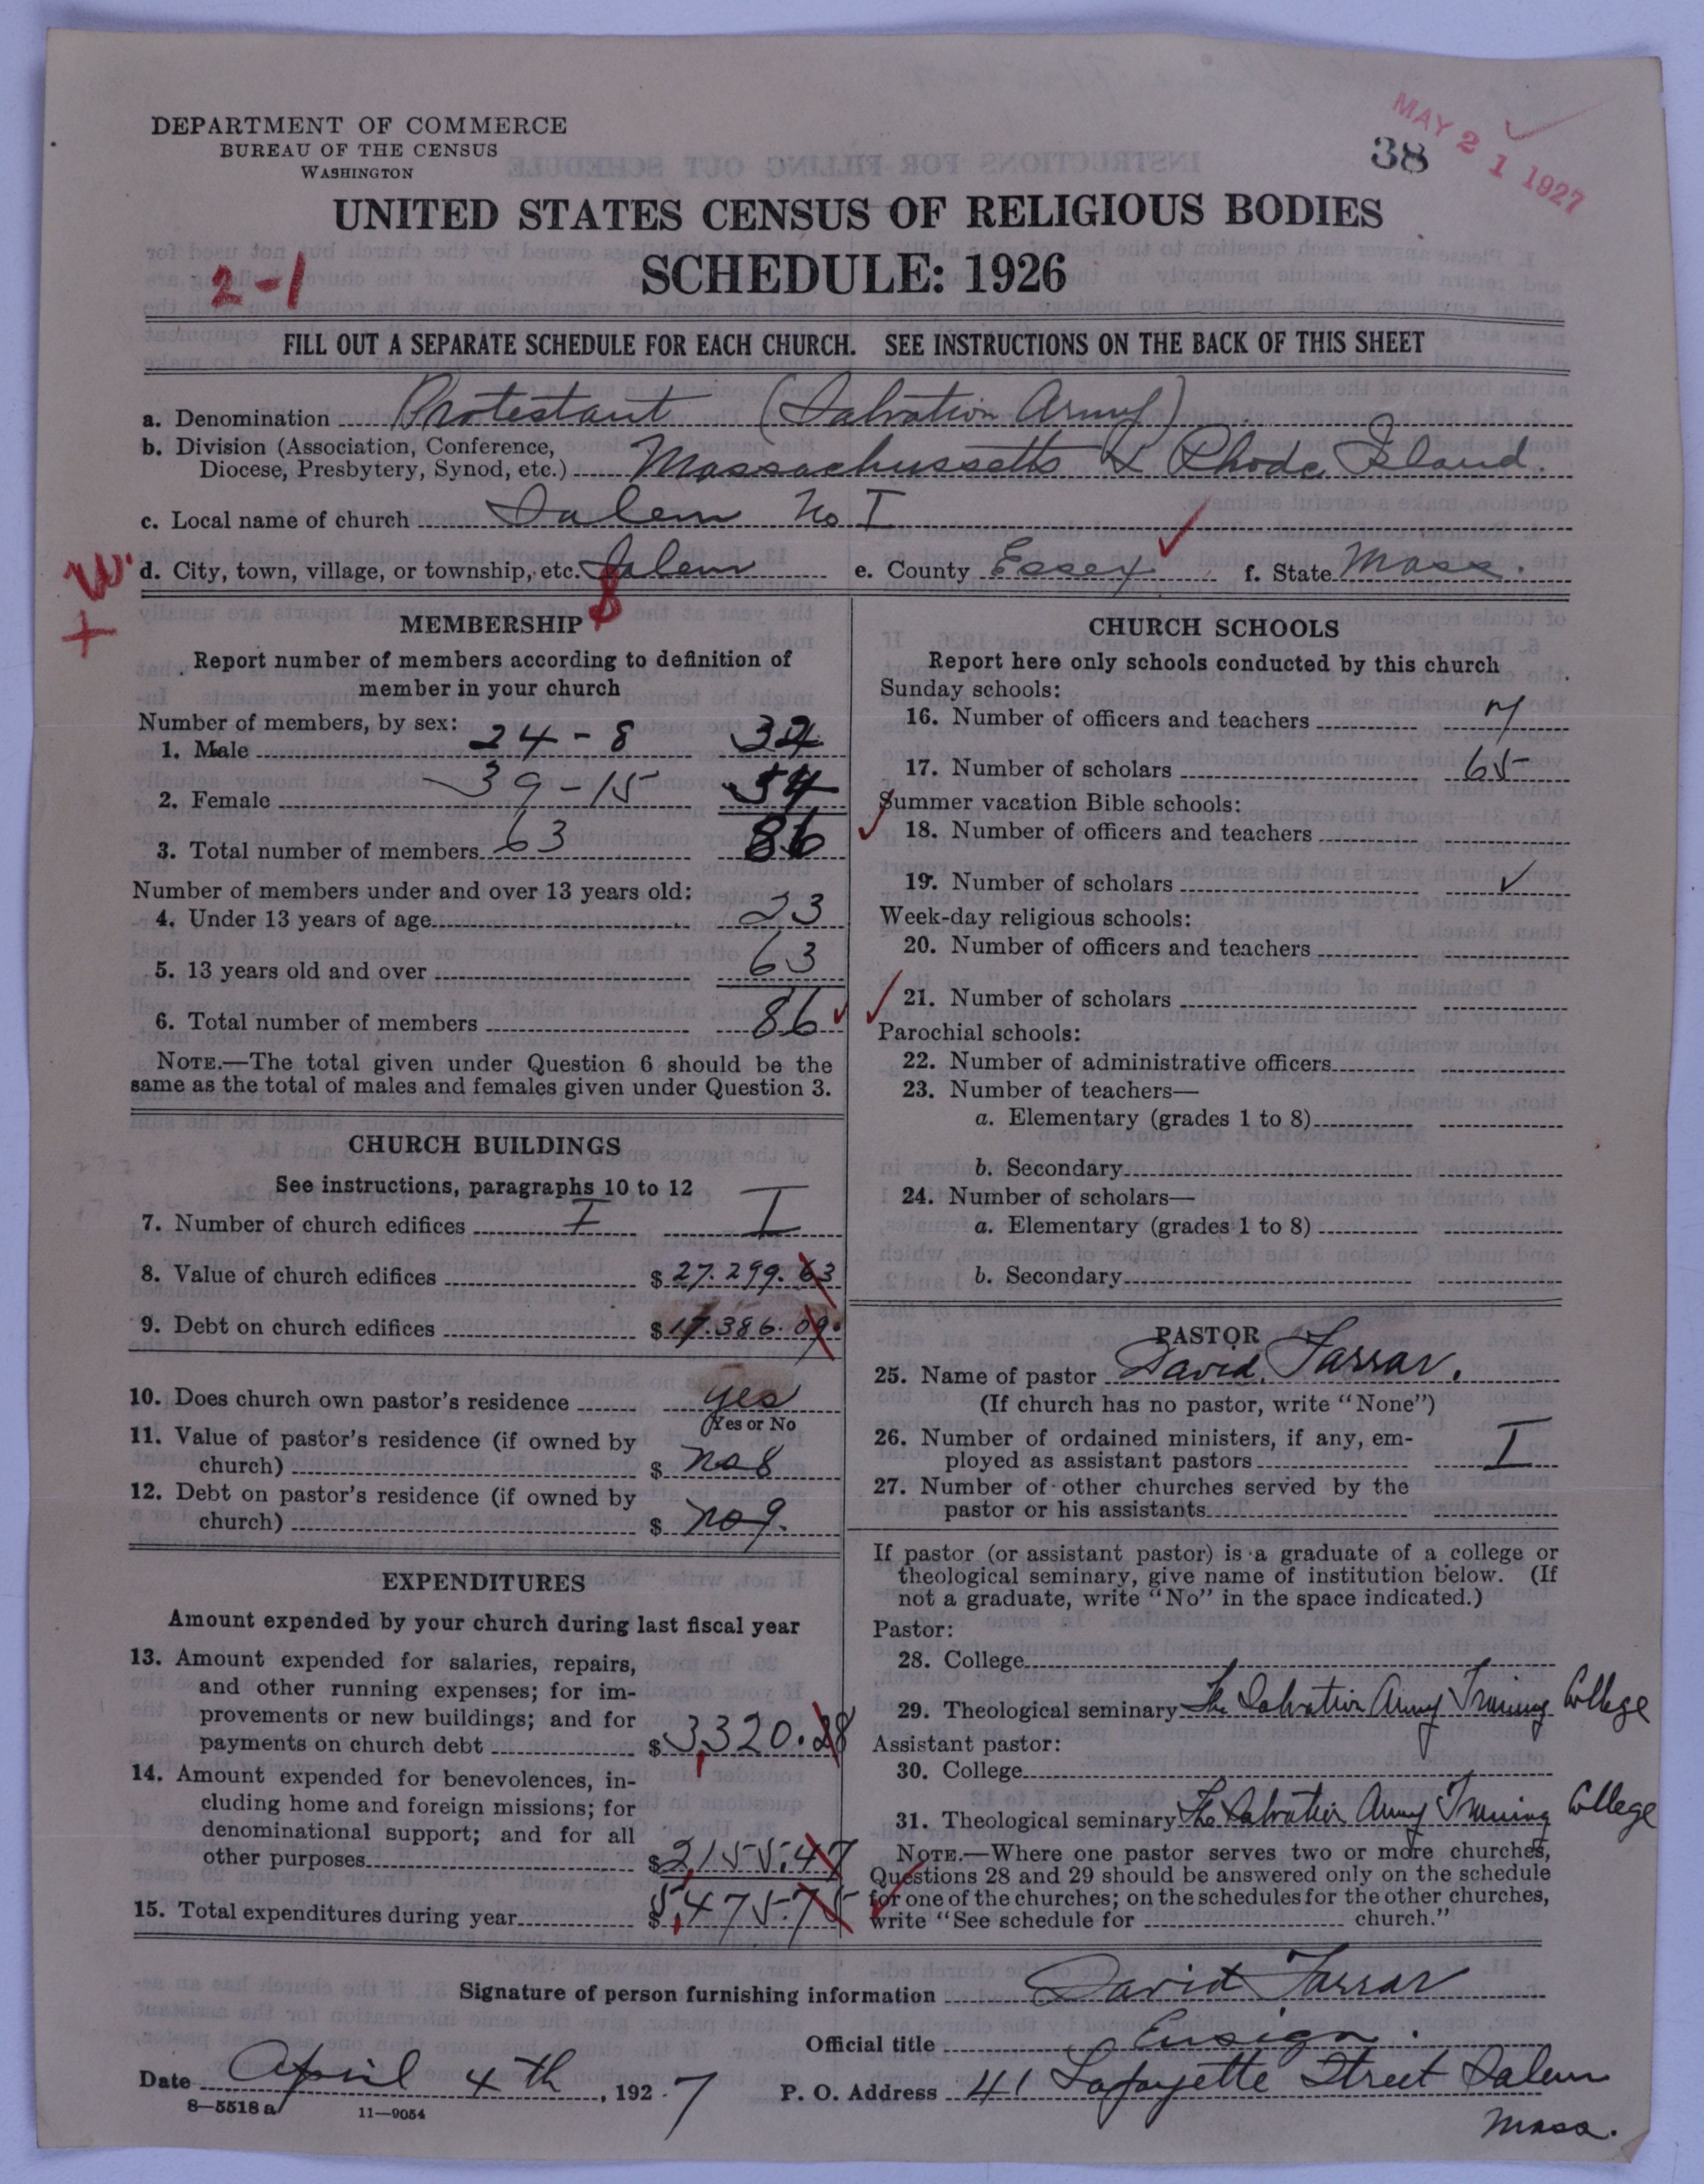 DEPARTMENT OF COMMERCE
BUREAU OF THE CENSUS
WASHINGTON
MAY 21 1927
38
UNITED STATES CENSUS OF RELIGIOUS BODIES
SCHEDULE: 1926
2-1
FILL OUT A SEPARATE SCHEDULE FOR EACH CHURCH. SEE INSTRUCTIONS ON THE BACK OF THIS SHEET
a. Denomination Protestant (Salvation Army)
b. Division (Association, Conference,
Diocese, Presbytery, Synod, etc.) Massachussetts & Rhode Island.
c. Local name of church Salem No I
d. City, town, village, or township, etc. Salem e. County Essex f. State Mass.
MEMBERSHIP
Report number of members according to definition of
member in your church
Number of members, by sex:
1. Male 24-8 32
2. Female 39-15 54
3. Total number of members 63 86
Number of members under and over 13 years old:
4. Under 13 years of age 23
5. 13 years old and over 63
6. Total number of members 86
NOTE.—The total given under Question 6 should be the
same as the total of males and females given under Question 3.
CHURCH BUILDINGS
See instructions, paragraphs 10 to 12
7. Number of church edifices I I
8. Value of church edifices $ 27.299.63
9. Debt on church edifices $ 17.386.09
10. Does church own pastor's residence yes
(Yes or No
11. Value of pastor's residence (if owned by
church) $ no 8
12. Debt on pastor's residence (if owned by
church) $ no 9.
EXPENDITURES
Amount expended by your church during last fiscal year
13. Amount expended for salaries, repairs,
and other running expenses; for im-
provements or new buildings; and for
payments on church debt $ 3,320.28
14. Amount expended for benevolences, in-
cluding home and foreign missions; for
denominational support; and for all
other purposes $ 2,155.47
15. Total expenditures during year $ 5,475.75
CHURCH SCHOOLS
Report here only schools conducted by this church
Sunday schools:
16. Number of officers and teachers 7
17. Number of scholars 65
Summer vacation Bible schools:
18. Number of officers and teachers
19. Number of scholars
Week-day religious schools:
20. Number of officers and teachers
21. Number of scholars
Parochial schools:
22. Number of administrative officers
23. Number of teachers—
a. Elementary (grades 1 to 8)
b. Secondary
24. Number of scholars—
a. Elementary (grades 1 to 8)
b. Secondary
PASTOR
25. Name of pastor David Farrar.
(If church has no pastor, write "None")
26. Number of ordained ministers, if any, em-
ployed as assistant pastors I
27. Number of other churches served by the
pastor or his assistants
If pastor (or assistant pastor) is a graduate of a college or
theological seminary, give name of institution below. (If
not a graduate, write "No" in the space indicated.)
Pastor:
28. College
29. Theological seminary The Salvation Army Training College
Assistant pastor:
30. College
31. Theological seminary The Salvation Army Training College
NOTE.—Where one pastor serves two or more churches,
Questions 28 and 29 should be answered only on the schedule
for one of the churches; on the schedules for the other churches,
write "See schedule for church."
Signature of person furnishing information David Farrar
Official title Ensign.
Date April 4th, 1927 P. O. Address 41 Lafayette Street Salem
Mass.
8—5518 a 11—9054